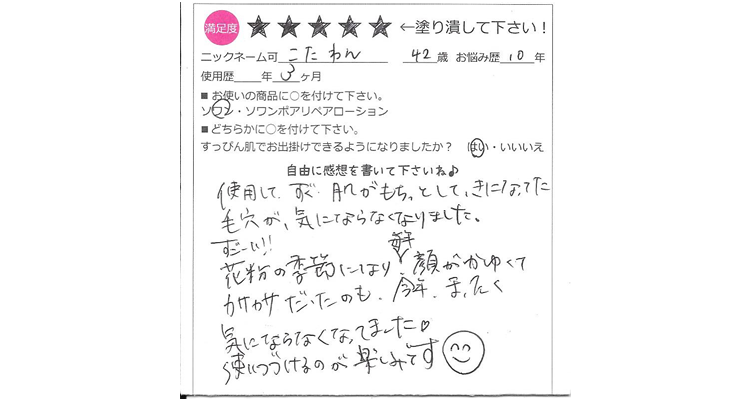 満足度 ★★★★★ ←塗り潰して下さい！
ニックネーム可 こたわん 42歳 お悩み歴 10年
使用歴 年 3ヶ月
■ お使いの商品に○を付けて下さい。
ソワン・ソワンポアリペアローション
■ どちらかに○を付けて下さい。
すっぴん肌でお出掛けできるようになりましたか？ はい・いいいえ
自由に感想を書いて下さいね♪
使用して、すぐ 肌がもちっとして、きになってた
毛穴が、気にならなくなりました。
すご〜い!!
毎年
花粉の季節になり 顔がかゆくて
カサカサだったのも、今年、まったく
気にならなくなってました♡
使いつづけるのが楽しみです